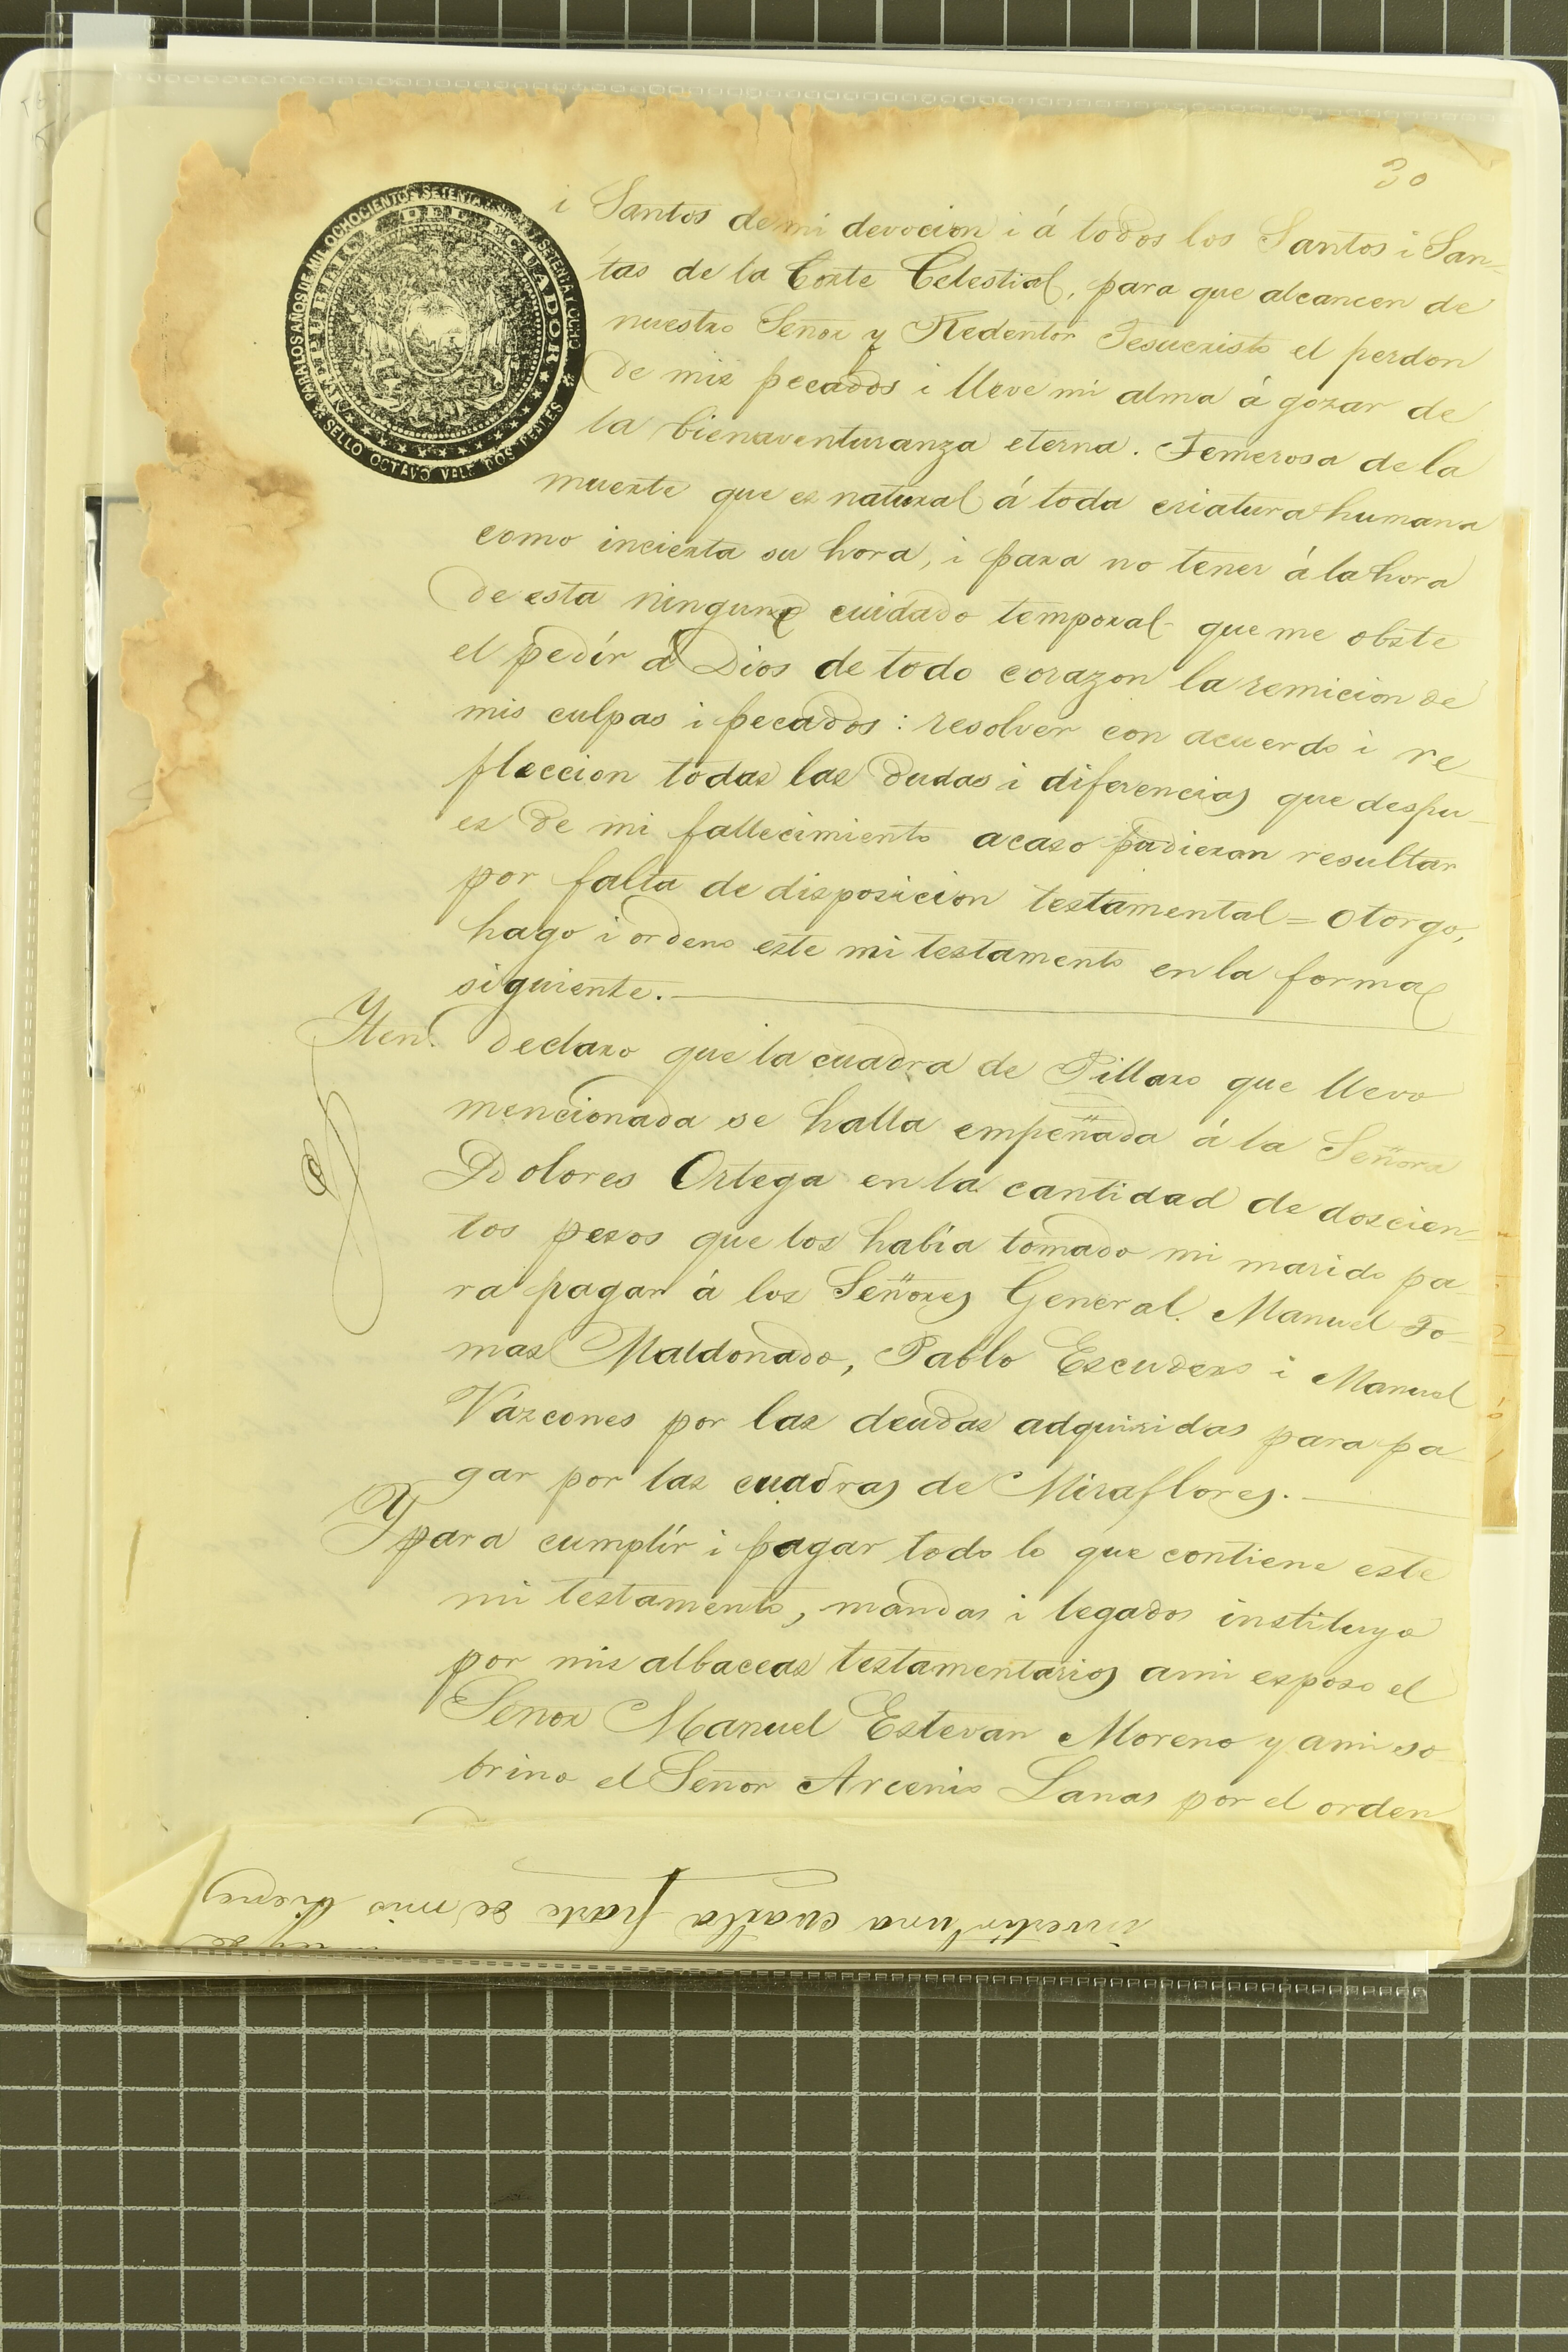 30
PARA LOS AÑOS DE MIL OCHOCIENTOS SETENTA I SIETE I SETENTA Y OCHO
SELLO OCTAVO VALE DOS REALES
REPUBLICA DEL ECUADOR
i Santos de mi devocion i á todos los Santos i San-
tas de la Corte Celestial, para que alcancen de
nuestro Señor y Redentor Jesucristo el perdon
de mis pecados i lleve mi alma á gozar de
la bienaventuranza eterna. Temerosa de la
muerte que es natural á toda criatura humana
como incierta su hora, i para no tener á la hora
de esta ninguno cuidado temporal que me obste
el pedír á Dios de todo corazon la remicion de
mis culpas i pecados: resolver con acuerdo i re-
fleccion todas las dudas i diferencias que despu-
es de mi fallecimiento acaso pudieran resultar
por falta de disposicion testamental = otorgo,
hago i ordeno este mi testamento en la forma
siguiente.
Yten. declaro que la cuadra de Pillaro que llevo
mencionada se halla empeñada á la Señora
Dolores Ortega en la cantidad de doscien-
tos pesos que los había tomado mi marido pa-
ra pagar á los Señores General. Manuel To-
mas Maldonado, Pablo Escudero i Manuel
Váscones por las deudas adquiridas para pa-
gar por las cuadras de Miraflores.
Y para cumplír i pagar todo lo que contiene este
mi testamento, mandas i legados instituyo
por mis albaceas testamentarios a mi esposo el
Señor Manuel Estevan Moreno y a mi so-
brino el Señor Arcenio Lanas por el orden
invertir una cuarta parte de mis bienes